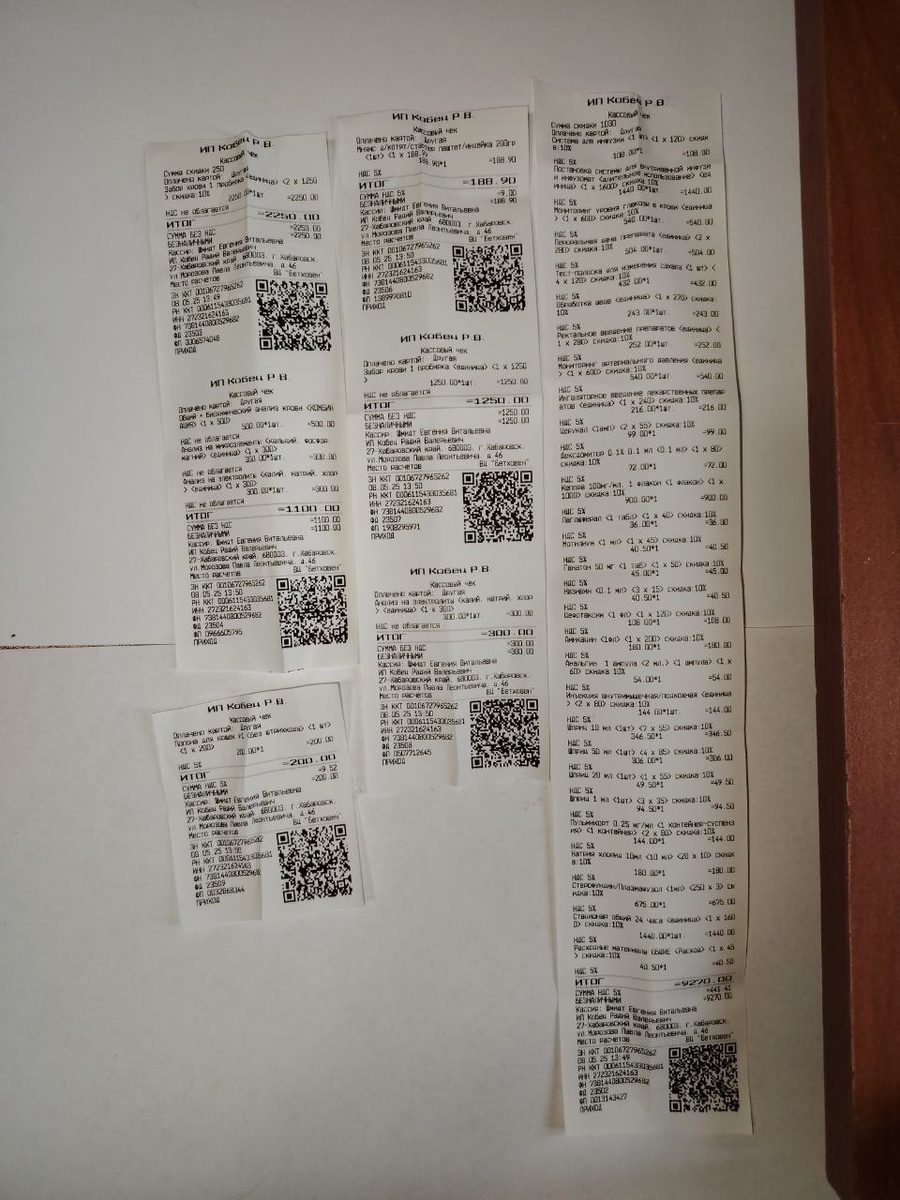 ИП Кобец Р.В.
Кассовый чек
Сумма скидки 250
Оплачено картой: Другая
Забор крови 1 пробирка <единица> <2 x 1250
> скидка:10%
2250.00*1шт. =2250.00
НДС не облагается
ИТОГ =2250.00
СУММА БЕЗ НДС =2250.00
БЕЗНАЛИЧНЫМИ =2250.00
Кассир: Шмидт Евгения Витальевна
ИП Кобец Радий Валерьевич
27-Хабаровский край, 680003, г.Хабаровск,
ул.Морозова Павла Леонтьевича, д.46
Место расчетов ВЦ "Бетховен"
ЗН ККТ 00106727965262
08.05.25 13:49
РН ККТ 0006115433035681
ИНН 272321624163
ФН 7381440800529682
ФД 23503
ФП 0006574048
ПРИХОД
ИП Кобец Р.В.
Кассовый чек
Оплачено картой: Другая
Общий + Биохимический анализ крови <КОМБИН
АЦИЯ> <1 x 500>
500.00*1шт. =500.00
НДС не облагается
Анализ на микроэлементы <кальций, фосфор,
магний> <единица> <1 x 300>
300.00*1шт. =300.00
НДС не облагается
Анализ на электролиты <калий, натрий, хлор
> <единица> <1 x 300>
300.00*1шт. =300.00
НДС не облагается
ИТОГ =1100.00
СУММА БЕЗ НДС =1100.00
БЕЗНАЛИЧНЫМИ =1100.00
Кассир: Шмидт Евгения Витальевна
ИП Кобец Радий Валерьевич
27-Хабаровский край, 680003, г.Хабаровск,
ул.Морозова Павла Леонтьевича, д.46
Место расчетов ВЦ "Бетховен"
ЗН ККТ 00106727965262
08.05.25 13:50
РН ККТ 0006115433035681
ИНН 272321624163
ФН 7381440800529682
ФД 23504
ФП 0966605795
ПРИХОД
ИП Кобец Р.В.
Кассовый чек
Оплачено картой: Другая
Попона для кошек <без штрихкода> <1 шт>
<1 x 200>
=200.00
НДС 5%
ИТОГ =200.00
СУММА НДС 5% =9.52
БЕЗНАЛИЧНЫМИ =200.00
Кассир: Шмидт Евгения Витальевна
ИП Кобец Радий Валерьевич
27-Хабаровский край, 680003, г.Хабаровск,
ул.Морозова Павла Леонтьевича, д.46
Место расчетов ВЦ "Бетховен"
ЗН ККТ 00106727965262
08.05.25 13:50
РН ККТ 0006115433035681
ИНН 272321624163
ФН 7381440800529682
ФД 23509
ФП 0032868344
ПРИХОД
ИП Кобец Р.В.
Кассовый чек
Оплачено картой: Другая
паштет/индейка 200гр
<1шт> <1 x 188.9>
188.90*1 =188.90
НДС 5%
ИТОГ =188.90
СУММА НДС 5% =9.00
БЕЗНАЛИЧНЫМИ =188.90
Кассир: Шмидт Евгения Витальевна
ИП Кобец Радий Валерьевич
27-Хабаровский край, 680003, г.Хабаровск,
ул.Морозова Павла Леонтьевича, д.46
Место расчетов ВЦ "Бетховен"
ЗН ККТ 00106727965262
08.05.25 13:50
РН ККТ 0006115433035681
ИНН 272321624163
ФН 7381440800529682
ФД 23506
ФП 1389970810
ПРИХОД
ИП Кобец Р.В.
Кассовый чек
Оплачено картой: Другая
Забор крови 1 пробирка <единица> <1 x 1250
>
1250.00*1шт. =1250.00
НДС не облагается
ИТОГ =1250.00
СУММА БЕЗ НДС =1250.00
БЕЗНАЛИЧНЫМИ =1250.00
Кассир: Шмидт Евгения Витальевна
ИП Кобец Радий Валерьевич
27-Хабаровский край, 680003, г.Хабаровск,
ул.Морозова Павла Леонтьевича, д.46
Место расчетов ВЦ "Бетховен"
ЗН ККТ 00106727965262
08.05.25 13:50
РН ККТ 0006115433035681
ИНН 272321624163
ФН 7381440800529682
ФД 23507
ФП 1908295971
ПРИХОД
ИП Кобец Р.В.
Кассовый чек
Оплачено картой: Другая
Анализ на электролиты <калий, натрий, хлор
> <единица> <1 x 300>
300.00*1шт. =300.00
НДС не облагается
ИТОГ =300.00
СУММА БЕЗ НДС =300.00
БЕЗНАЛИЧНЫМИ =300.00
Кассир: Шмидт Евгения Витальевна
ИП Кобец Радий Валерьевич
27-Хабаровский край, 680003, г.Хабаровск,
ул.Морозова Павла Леонтьевича, д.46
Место расчетов ВЦ "Бетховен"
ЗН ККТ 00106727965262
08.05.25 13:50
РН ККТ 0006115433035681
ИНН 272321624163
ФН 7381440800529682
ФД 23508
ФП 0507712645
ПРИХОД
ИП Кобец Р.В.
Кассовый чек
Сумма скидки 1030
Оплачено картой: Другая
Система для инфузии <1 шт> <1 x 120> скидк
а:10%
108.00*1 =108.00
НДС 5%
Постановка системы для внутривенной инфузи
и инфузомат <длительное использование> <ед
иница> <1 x 1600> скидка:10%
1440.00*1шт. =1440.00
НДС 5%
Мониторинг уровня глюкозы в крови <единица
> <1 x 600> скидка:10%
540.00*1шт. =540.00
НДС 5%
Пероральная дача препарата <единица> <2 x
280> скидка:10%
504.00*1шт. =504.00
НДС 5%
Тест-полоска для измерения сахара <1 шт> <
4 x 120> скидка:10%
432.00*1 =432.00
НДС 5%
Обработка швов <единица> <1 x 270> скидка:
10%
243.00*1шт. =243.00
НДС 5%
Ректальное введение препаратов <единица> <
1 x 280> скидка:10%
252.00*1шт. =252.00
НДС 5%
Мониторинг артериального давления <единица
> <1 x 600> скидка:10%
540.00*1шт. =540.00
НДС 5%
Ингаляторное введение лекарственных препар
атов <единица> <1 x 240> скидка:10%
216.00*1шт. =216.00
НДС 5%
Церукал <1амп> <2 x 55> скидка:10%
99.00*1 =99.00
НДС 5%
Дексдомитор 0.1% 0.1 мл <0.1 мл> <1 x 80>
скидка:10%
72.00*1 =72.00
НДС 5%
Кеппра 100мг/мл, 1 флакон <1 флакон> <1 x
1000> скидка:10%
900.00*1 =900.00
НДС 5%
<1 табл> <1 x 40> скидка:10%
36.00*1 =36.00
НДС 5%
Мотилиум <1 мл> <1 x 45> скидка:10%
40.50*1 =40.50
НДС 5%
Ганатон 50 мг <1 таб> <1 x 50> скидка:10%
45.00*1 =45.00
НДС 5%
<0.1 мл> <3 x 15> скидка:10%
40.50*1 =40.50
НДС 5%
Цефотаксим <1 фл> <1 x 120> скидка:10%
108.00*1 =108.00
НДС 5%
Амикацин <1фл> <1 x 200> скидка:10%
180.00*1 =180.00
НДС 5%
Анальгин, 1 ампула <2 мл.> <1 ампула> <1 x
60> скидка:10%
54.00*1 =54.00
НДС 5%
Инъекция внутримышечная/подкожная <единица
> <2 x 80> скидка:10%
144.00*1шт. =144.00
НДС 5%
Шприц 10 мл <1шт> <7 x 55> скидка:10%
346.50*1 =346.50
НДС 5%
Шприц 50 мл <1шт> <4 x 85> скидка:10%
306.00*1 =306.00
НДС 5%
Шприц 20 мл <1шт> <1 x 55> скидка:10%
49.50*1 =49.50
НДС 5%
Шприц 1 мл <1шт> <3 x 35> скидка:10%
94.50*1 =94.50
НДС 5%
Пульмикорт 0.25 мг/мл <1 контейнер-суспенз
ия> <1 контейнер> <2 x 80> скидка:10%
144.00*1 =144.00
НДС 5%
Натрия хлорид 10мл <10 мл> <20 x 10> скидк
а:10%
180.00*1 =180.00
НДС 5%
Стерофундин/Плазмафузол <1мл> <250 x 3> ск
идка:10%
675.00*1 =675.00
НДС 5%
Стационар общий 24 часа <единица> <1 x 160
0> скидка:10%
1440.00*1шт. =1440.00
НДС 5%
Расходные материалы ОБЩИЕ <Расход> <1 x 45
> скидка:10%
40.50*1 =40.50
НДС 5%
ИТОГ =9270.00
СУММА НДС 5% =441.41
БЕЗНАЛИЧНЫМИ =9270.00
Кассир: Шмидт Евгения Витальевна
ИП Кобец Радий Валерьевич
27-Хабаровский край, 680003, г.Хабаровск,
ул.Морозова Павла Леонтьевича, д.46
Место расчетов ВЦ "Бетховен"
ЗН ККТ 00106727965262
08.05.25 13:49
РН ККТ 0006115433035681
ИНН 272321624163
ФН 7381440800529682
ФД 23502
ФП 0013143427
ПРИХОД